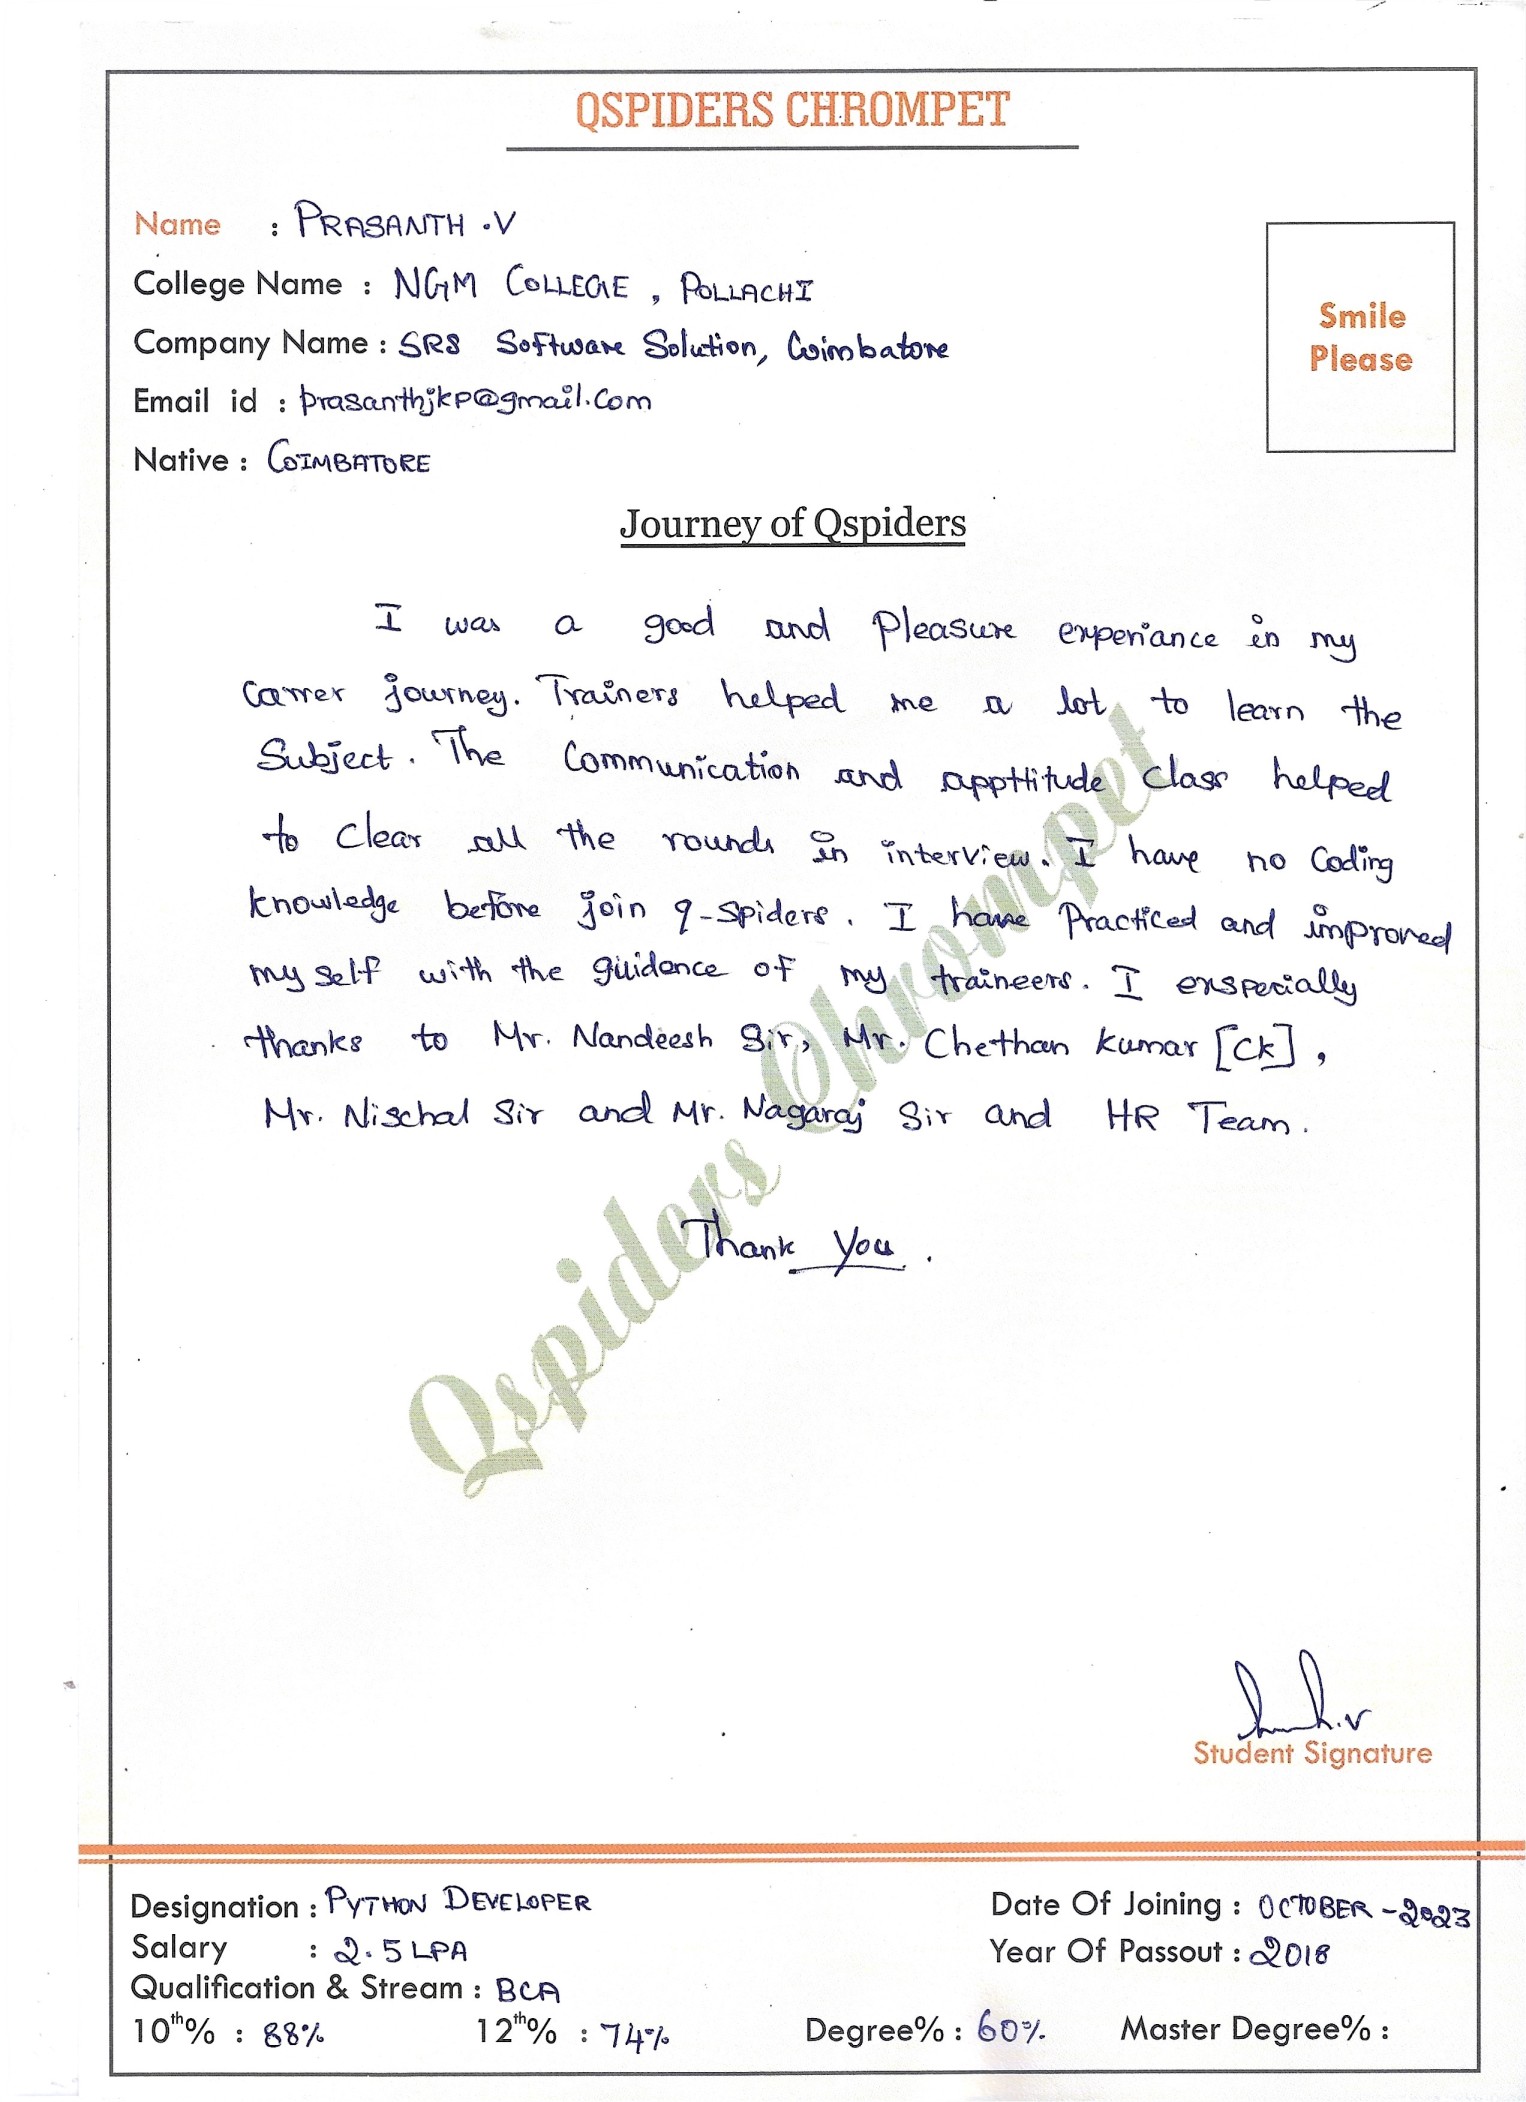 QSPIDERS CHROMPET
Name : PRASANTH .V
College Name : NGM COLLEGE , POLLACHI
Company Name : SRS Software Solution, Coimbatore
Email id : prasanthjkp@gmail.com
Native : COIMBATORE
Smile
Please
Journey of Qspiders
I was a good and Pleasure experiance in my
carrer journey. Trainers helped me a lot to learn the
Subject. The Communication and appttitude class helped
to clear all the rounds in interview. I have no Coding
knowledge before join q-spiders. I have Practiced and improved
my self with the guidence of my traineers. I exspecially
thanks to Mr. Nandeesh Sir, Mr. Chethan kumar [Ck] ,
Mr. Nischal Sir and Mr. Nagaraj Sir and HR Team.
Thank You .
Qspiders Chrompet
Student Signature
Designation : PYTHON DEVELOPER
Date Of Joining : OCTOBER - 2023
Salary : 2.5 LPA
Year Of Passout : 2018
Qualification & Stream : BCA
10th% : 88%
12th% : 74%
Degree% : 60%
Master Degree% :